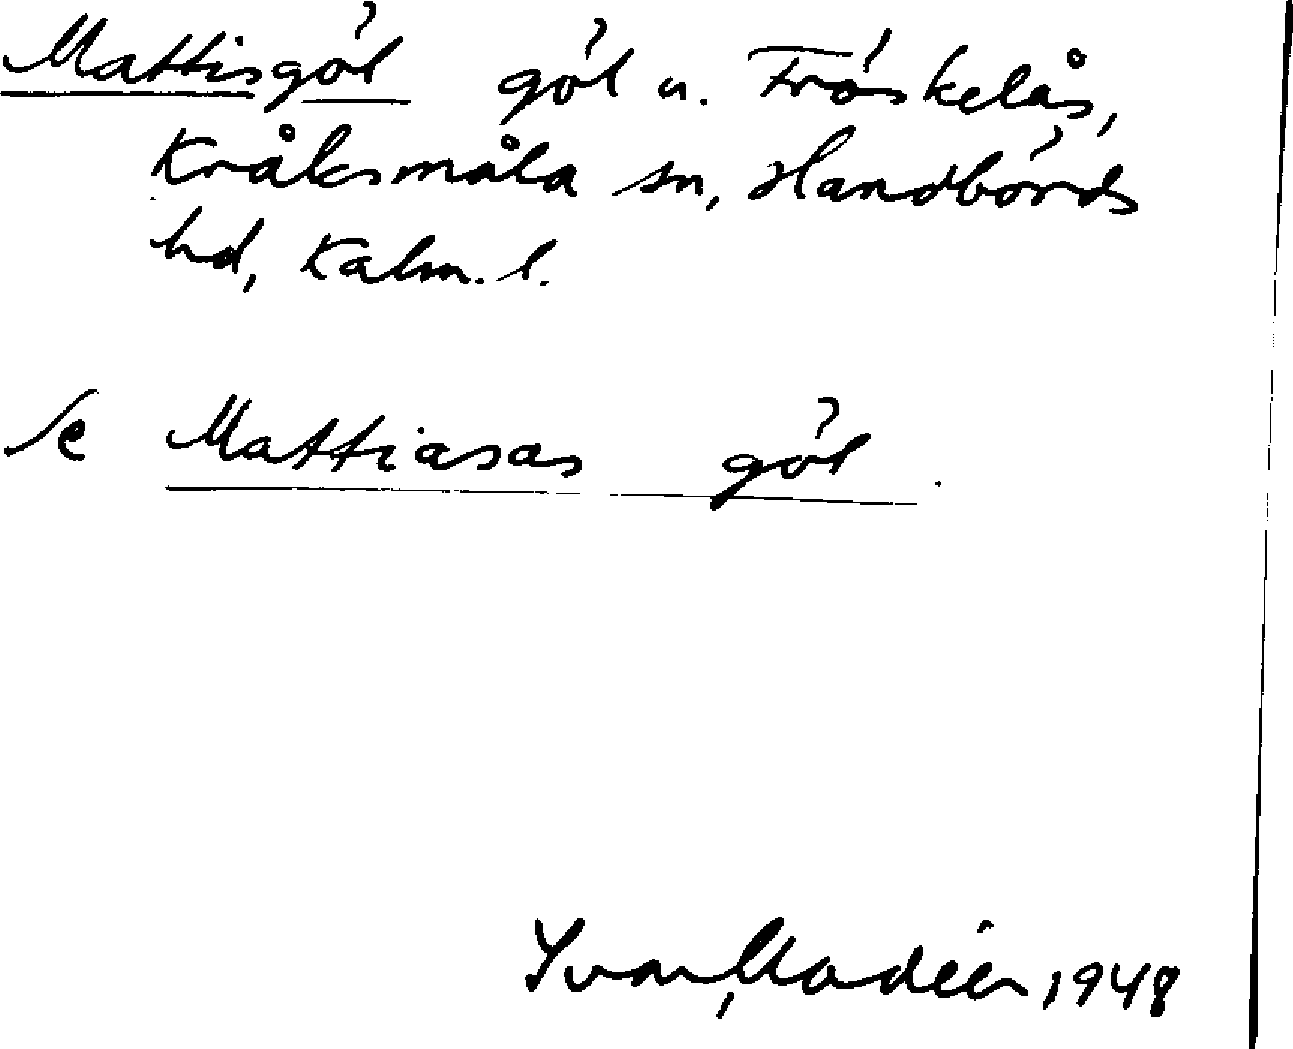 Mattisgöl göl u. Fröskelås,
Kråksmåla sn, Handbörds
hd, Kalm. l.
Se Mattiasas göl.
Ivar Modéer, 1948